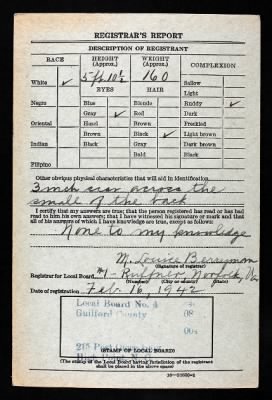 REGISTRAR'S REPORT
DESCRIPTION OF REGISTRANT
RACE HEIGHT (Approx.) WEIGHT (Approx.) COMPLEXION
White ✓ 5 ft 10½ 160 Sallow
EYES HAIR Light
Negro Blue Blonde Ruddy ✓
Gray ✓ Red Dark
Oriental Hazel Brown Freckled
Brown Black ✓ Light brown
Indian Black Gray Dark brown
Bald Black
Filipino
Other obvious physical characteristics that will aid in identification
3 inch scar across the
small of the back
I certify that my answers are true; that the person registered has read or has had
read to him his own answers; that I have witnessed his signature or mark and that
all of his answers of which I have knowledge are true, except as follows:
None to my knowledge
M. Louise Berryman
(Signature of registrar)
Registrar for Local Board #1 - Ruffner, Norfolk, Va
Date of registration Feb. 16, 1942
Local Board No. 4
Guilford County 08
(STAMP OF LOCAL BOARD)
(The stamp of the Local Board having jurisdiction of the registrant
shall be placed in the above space)